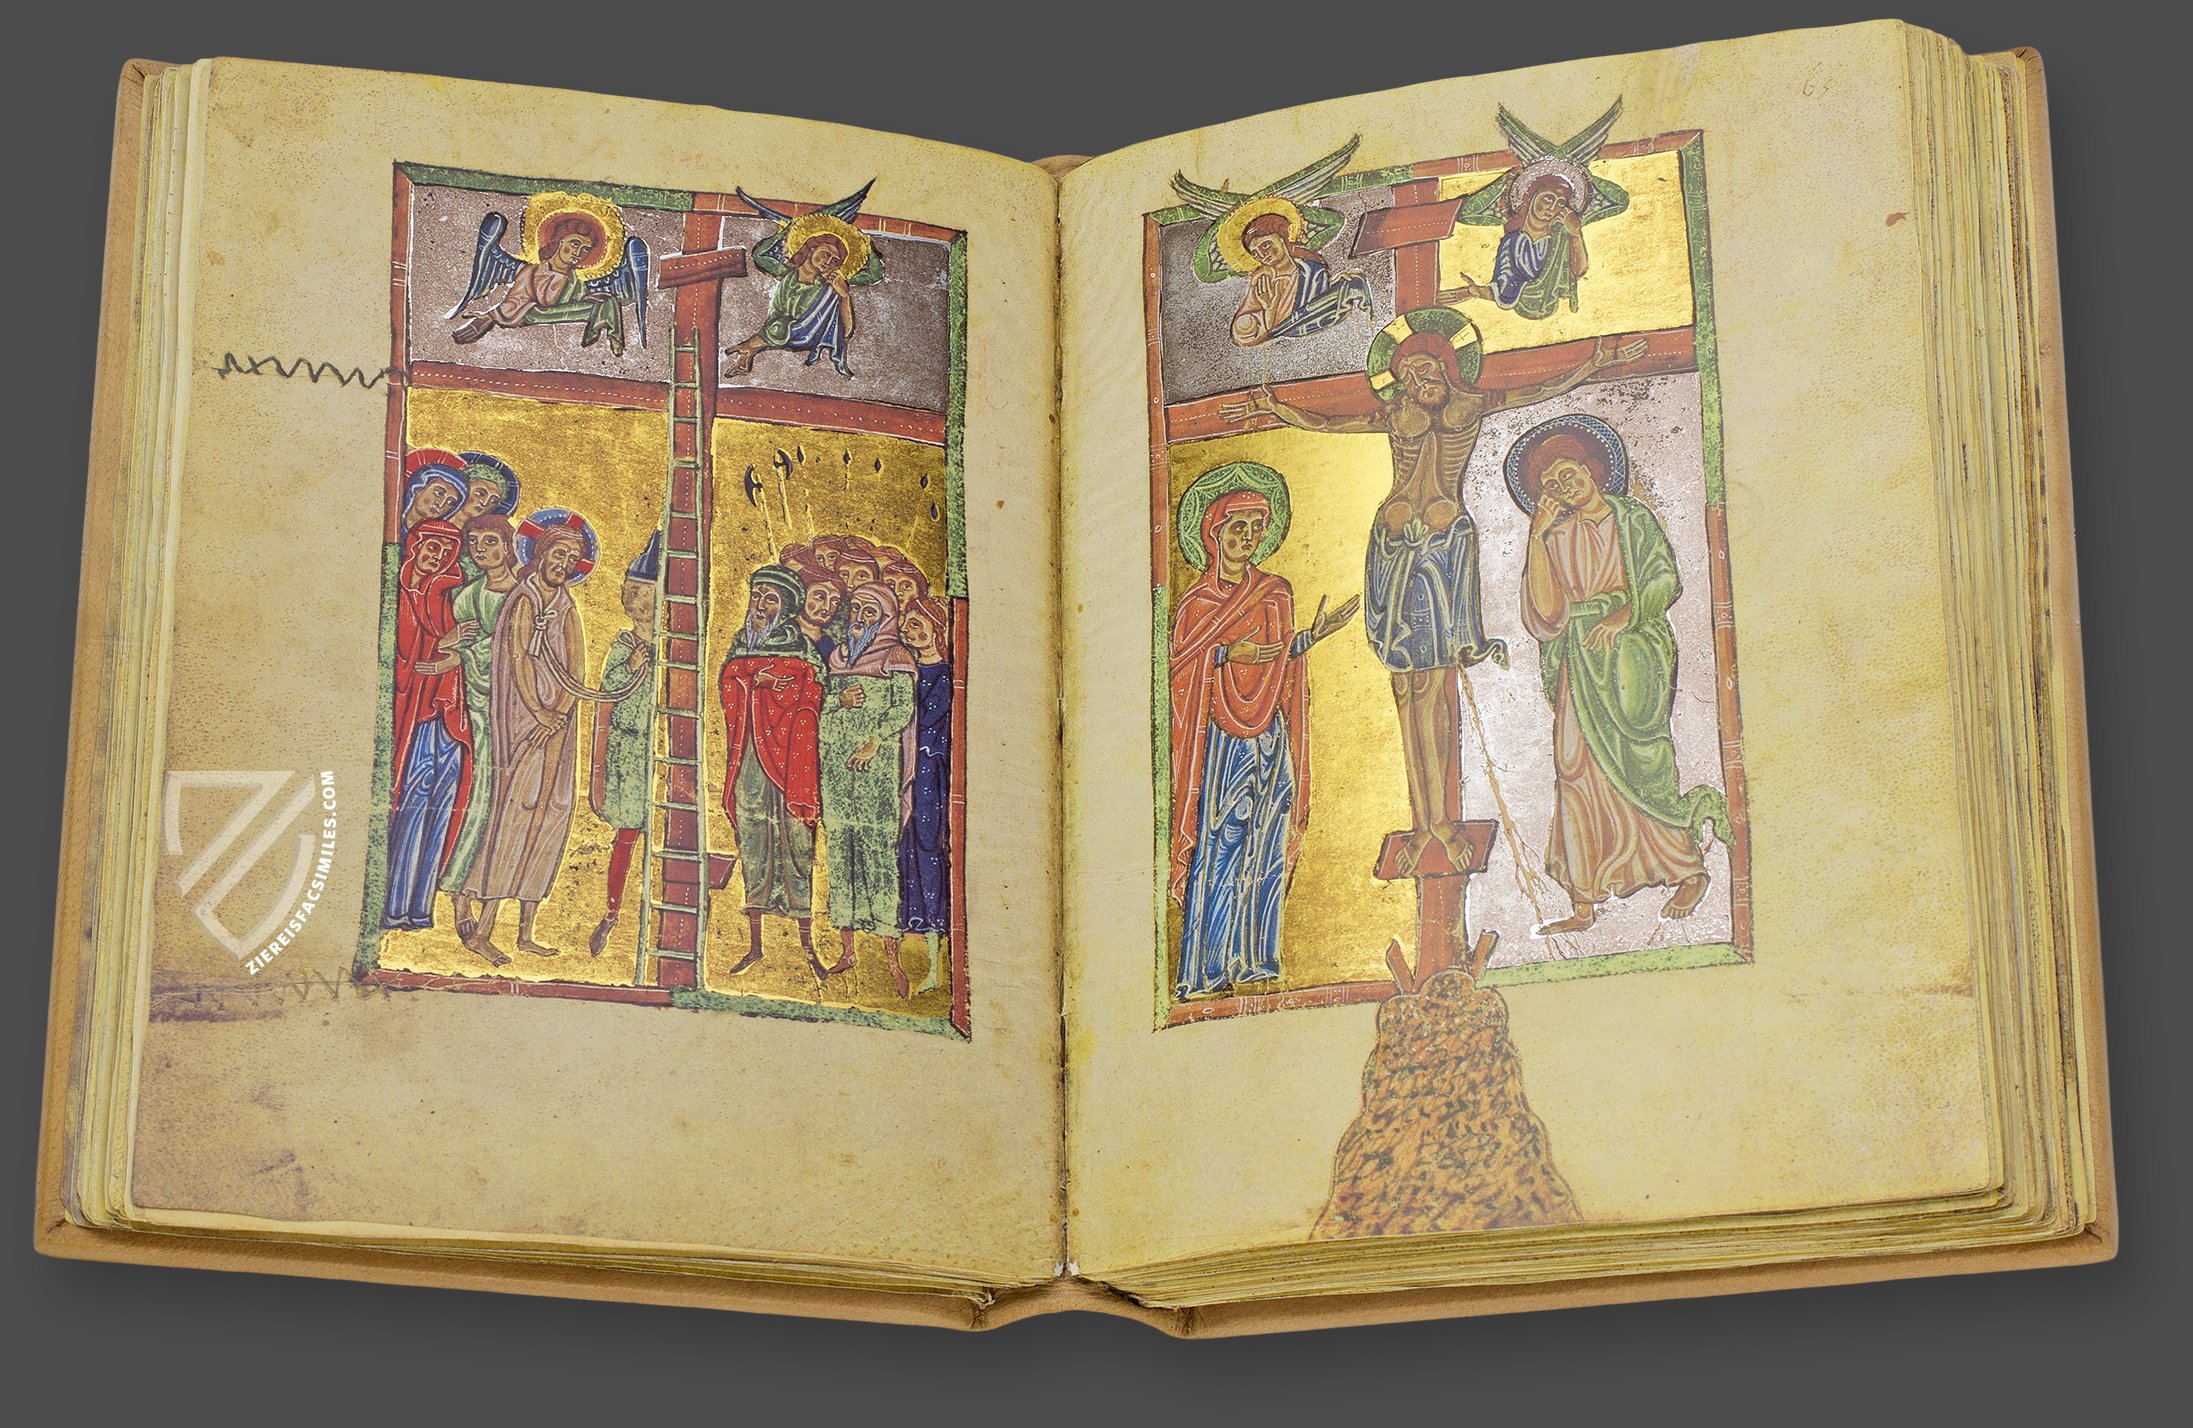 65
ZIEREISFACSIMILES.COM